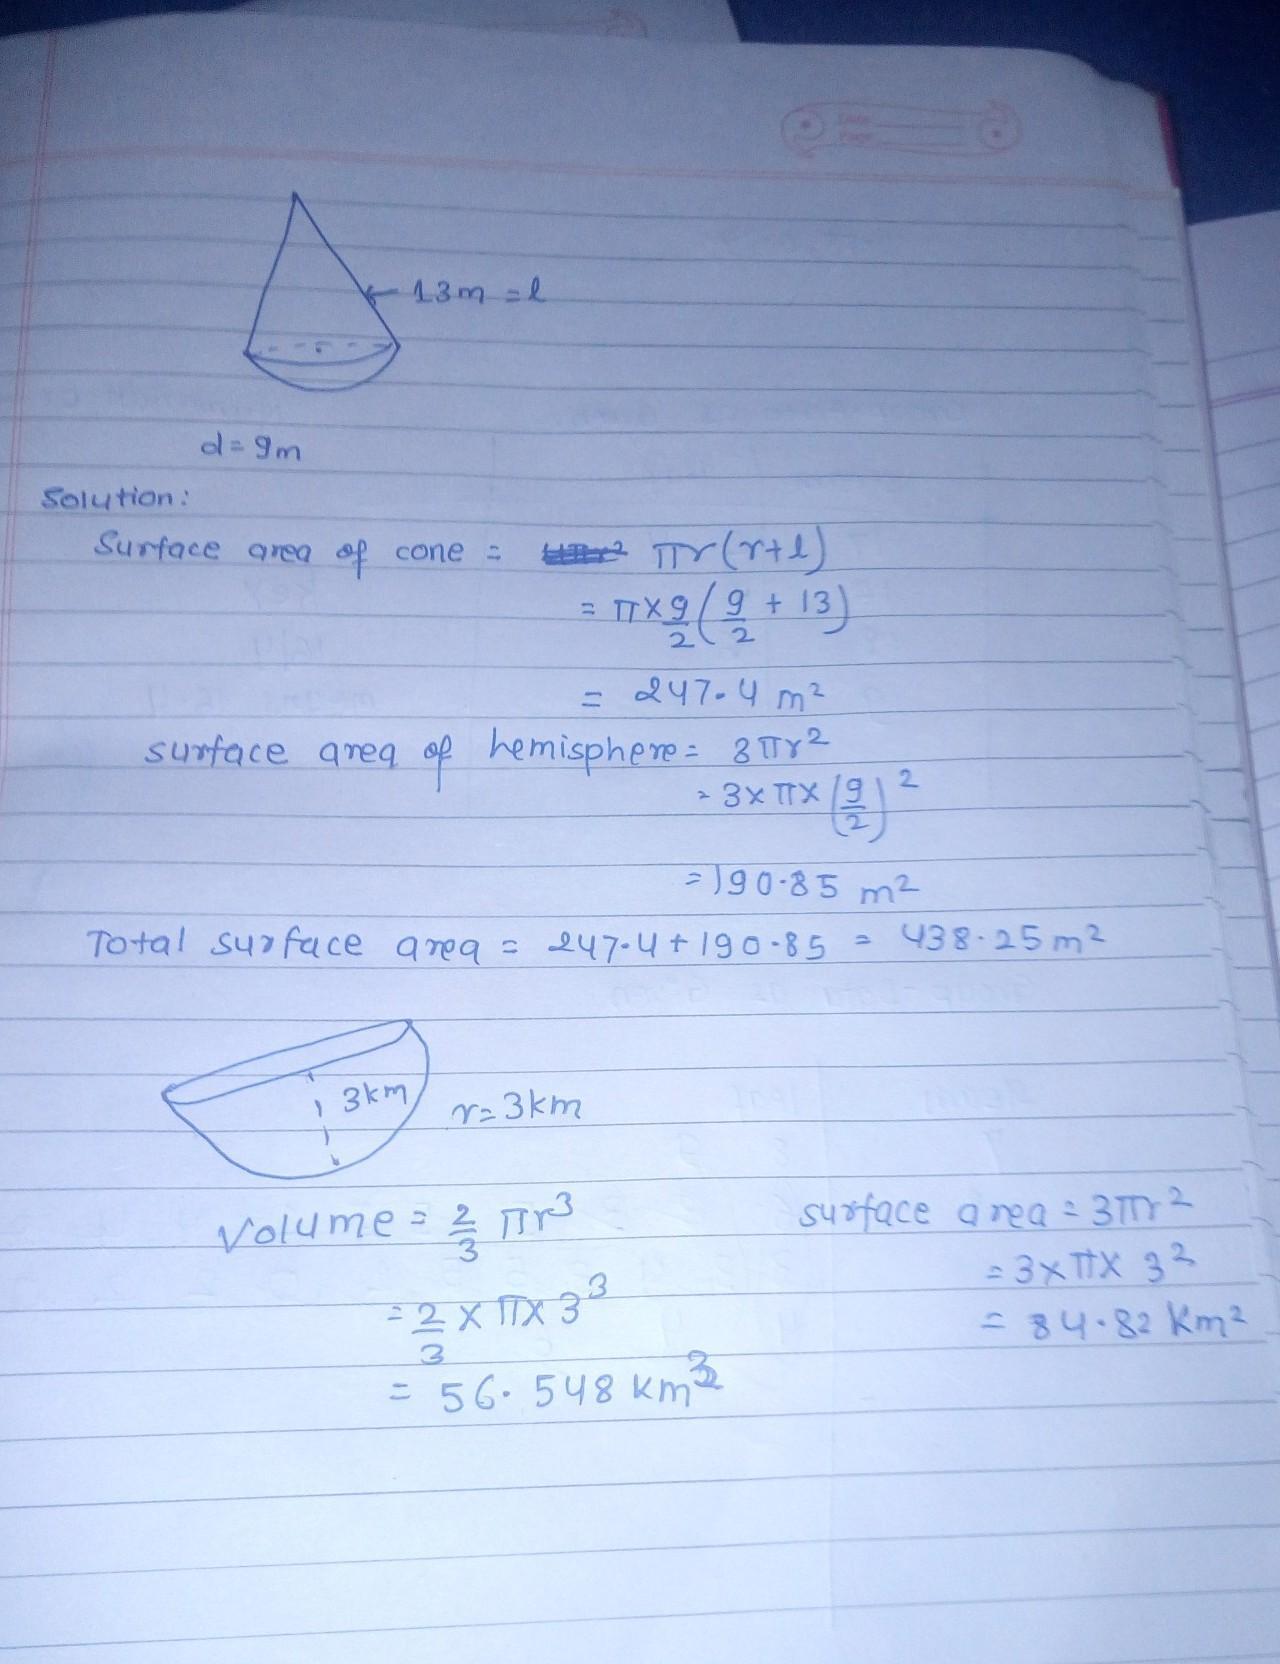 13m = l
d = 9m
Solution:
Surface area of cone = πr(r+l)
= π × 9/2 (9/2 + 13)
= 247.4 m²
surface area of hemisphere = 3πr²
= 3 × π × (9/2)²
= 190.85 m²
Total surface area = 247.4 + 190.85 = 438.25 m²
3km
r = 3km
Volume = 2/3 πr³
= 2/3 × π × 3³
= 56.548 km³
surface area = 3πr²
= 3 × π × 3²
= 84.82 Km²